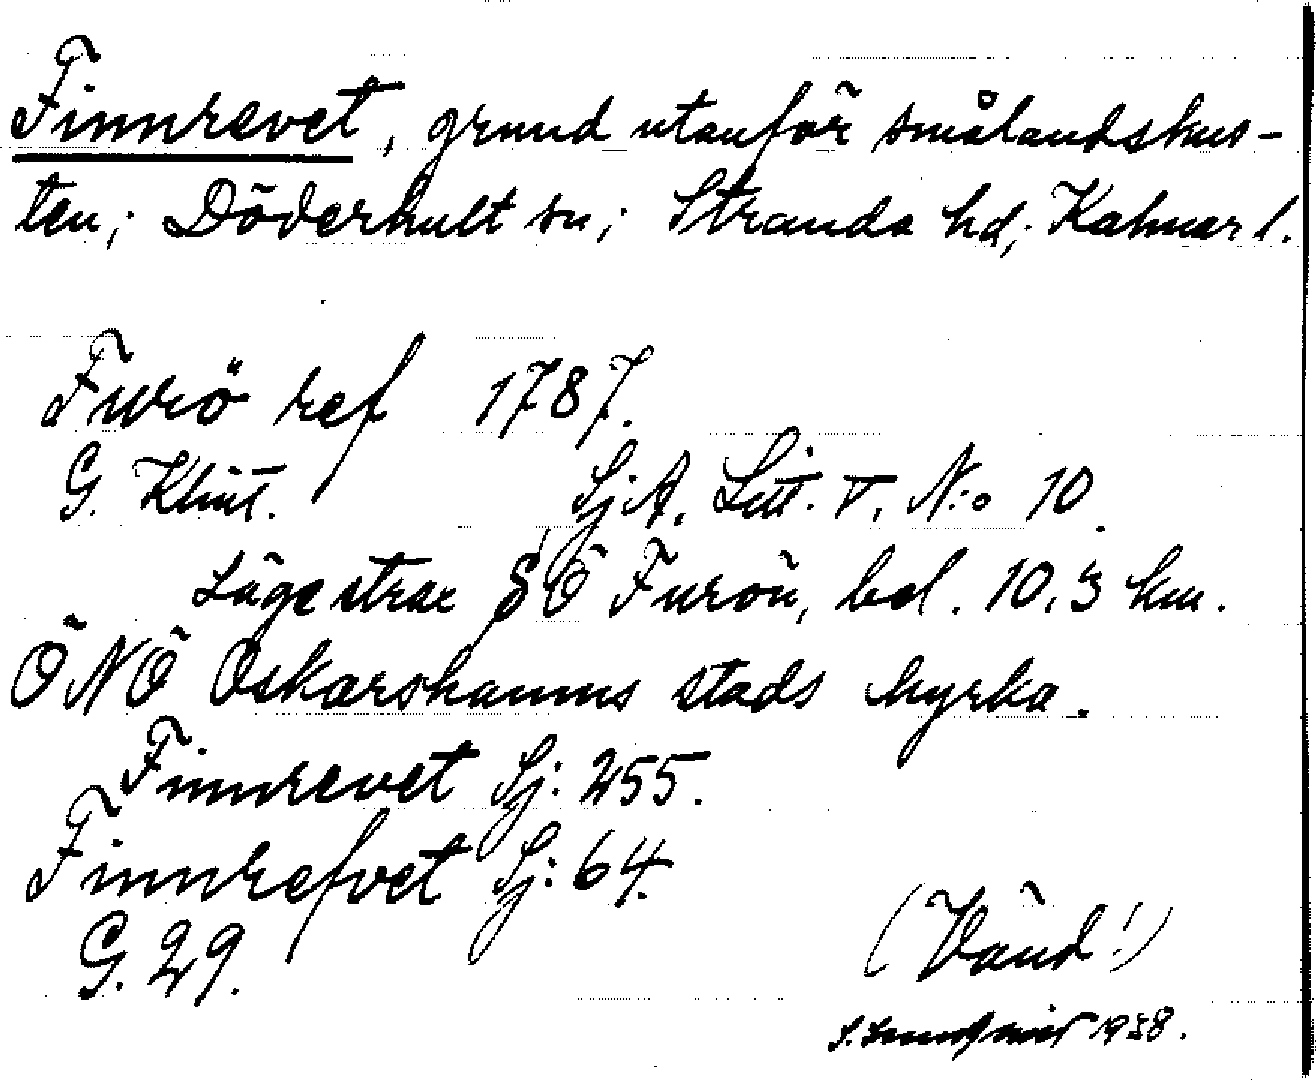 Finnrevet, grund utanför smålandskus-
ten; Döderhult sn; Stranda hd; Kalmar l.
Furö ref 1787.
G. Klint. Sj A. Litt. V. N:o 10.
Läge strax SÖ Furön, bel. 10,3 km.
ÖNÖ Oskarshamns stads kyrka.
Finnrevet Sj: 255.
Finnrefvet Sj: 64.
G. 29.
(Vänd!)
1938.